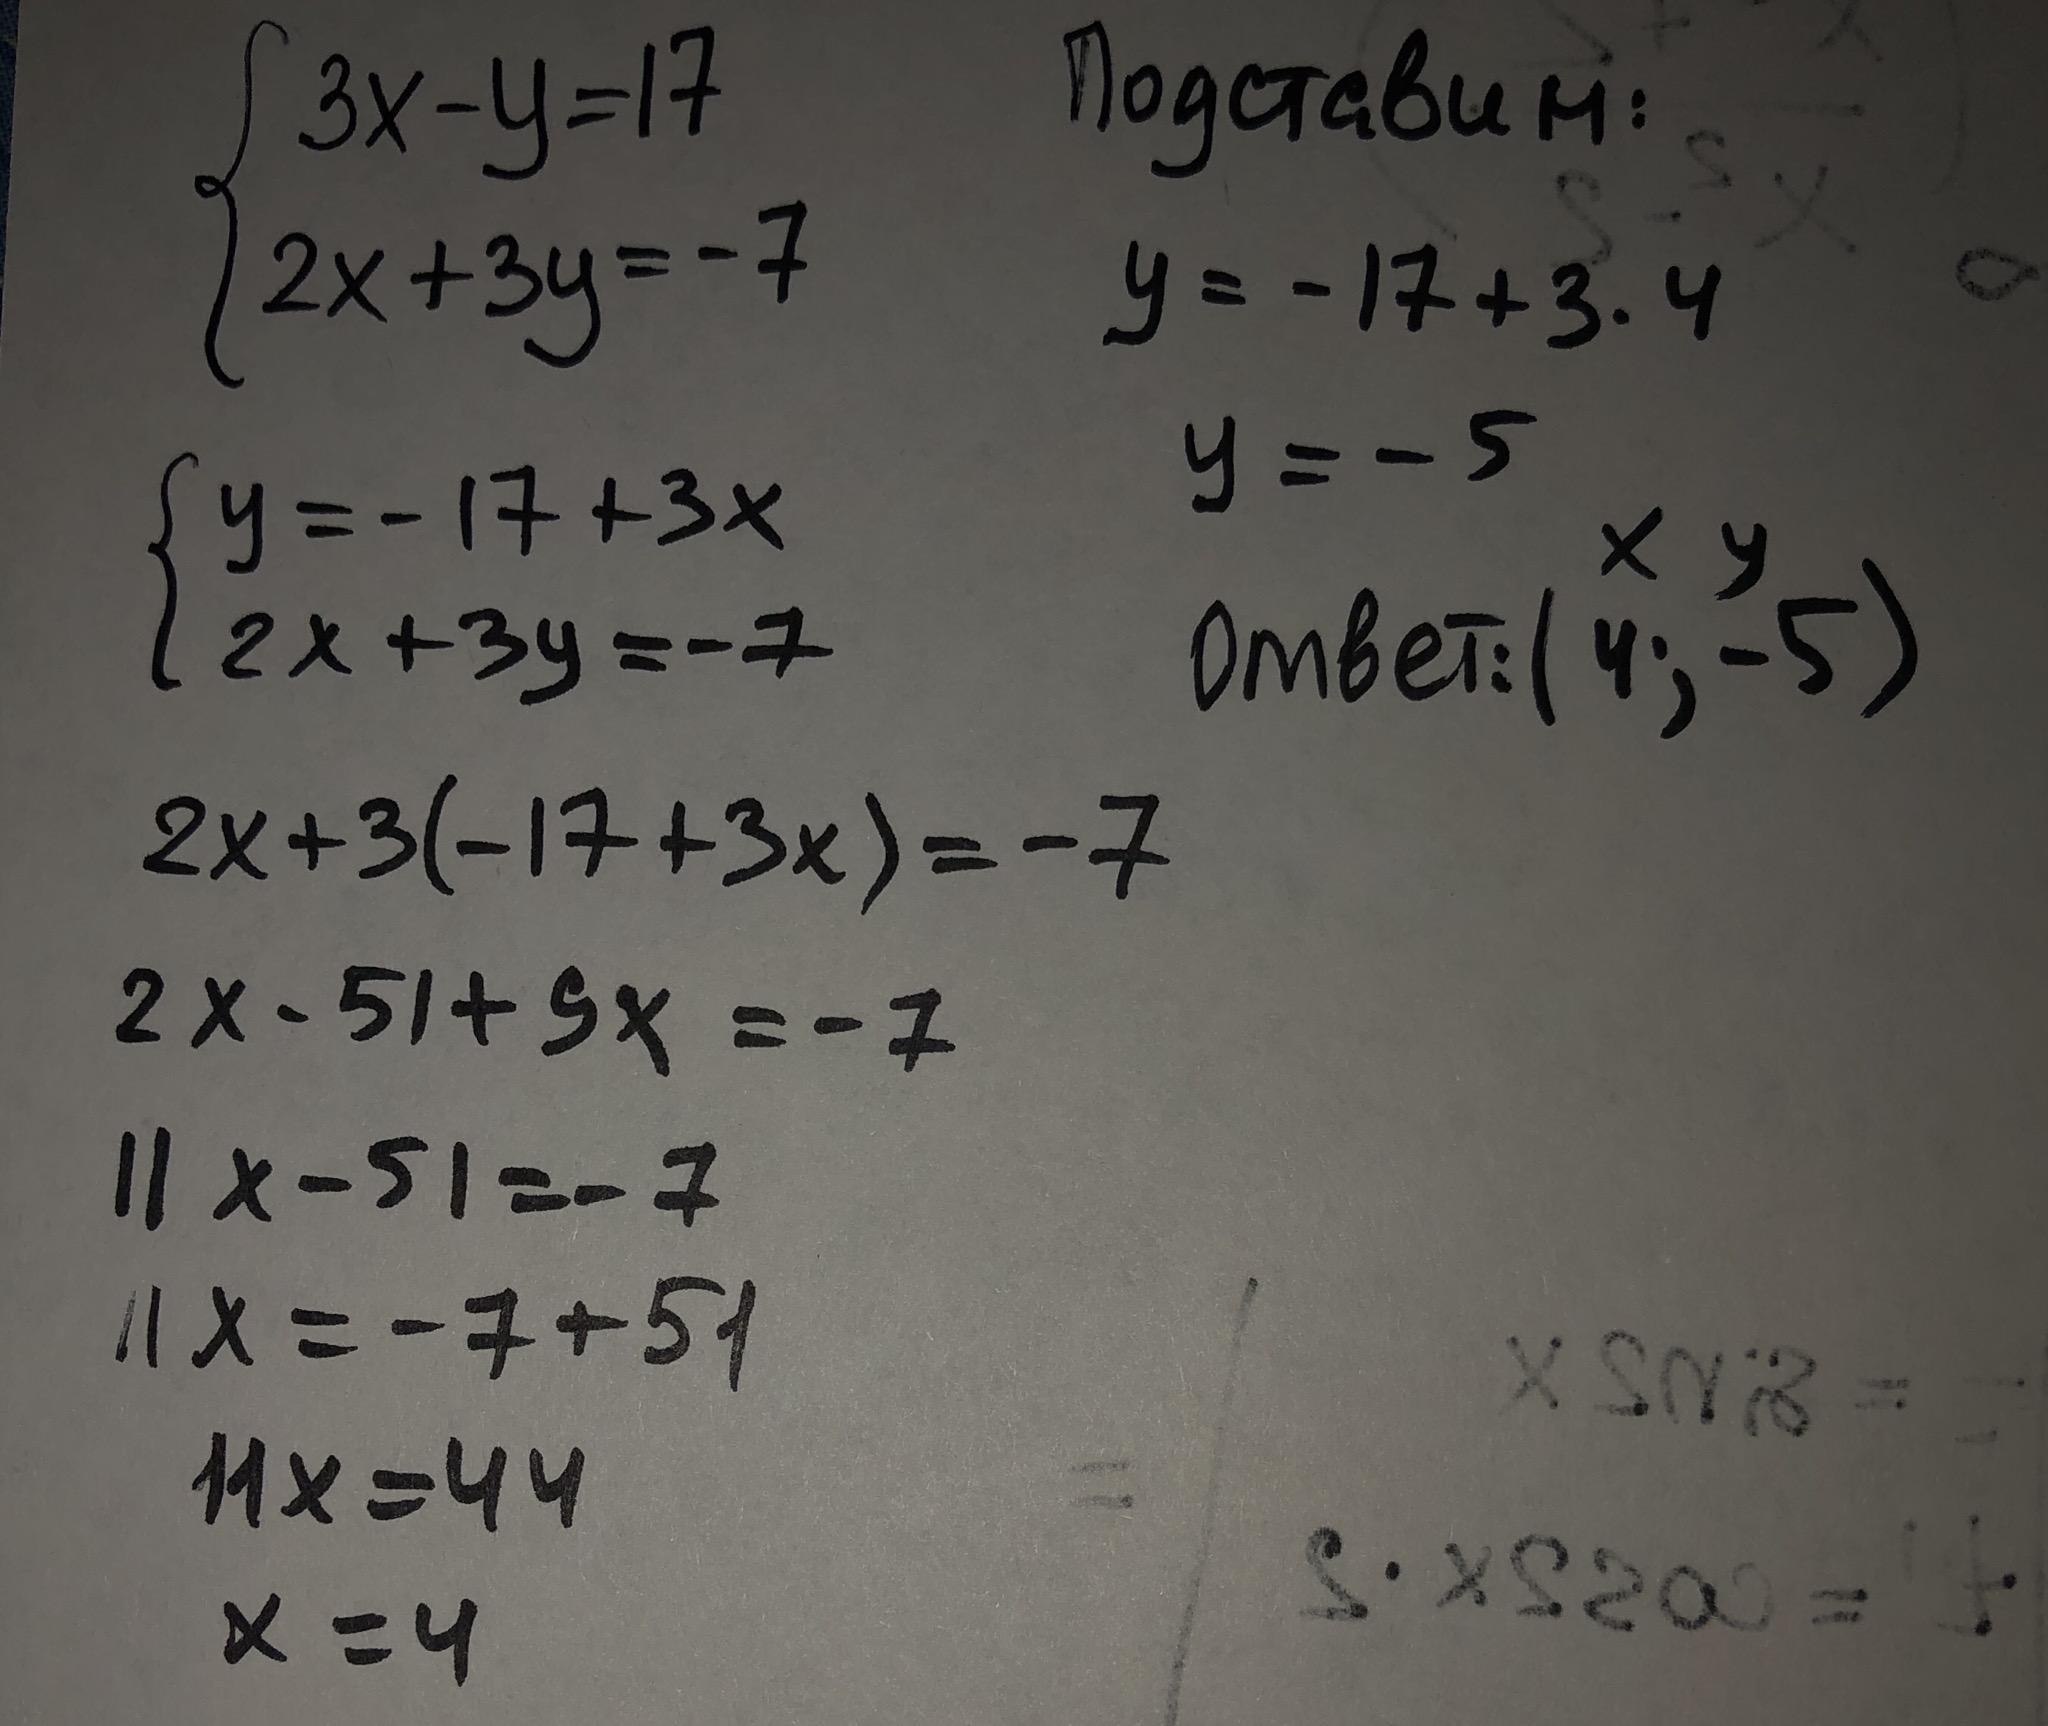 3x-y=17
2x+3y=-7
y=-17+3x
2x+3y=-7
2x+3(-17+3x)=-7
2x-51+9x=-7
11x-51=-7
11x=-7+51
11x=44
x=4
Подставим:
y=-17+3·4
y=-5
x y
Ответ:(4;-5)
= sin2x
t' = cos2x·2